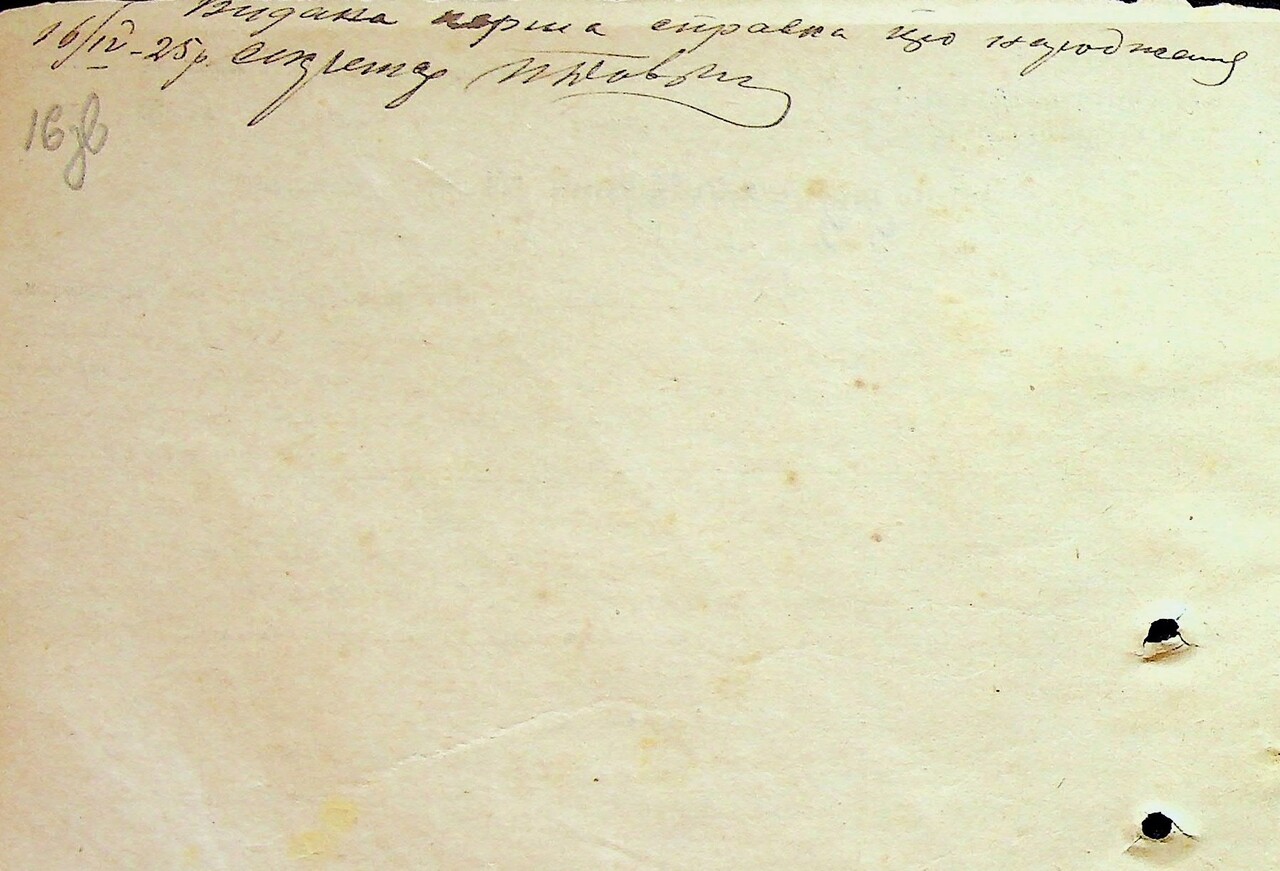 Видана перша справка про народження
16/IV-25р. Секретар
16 зв